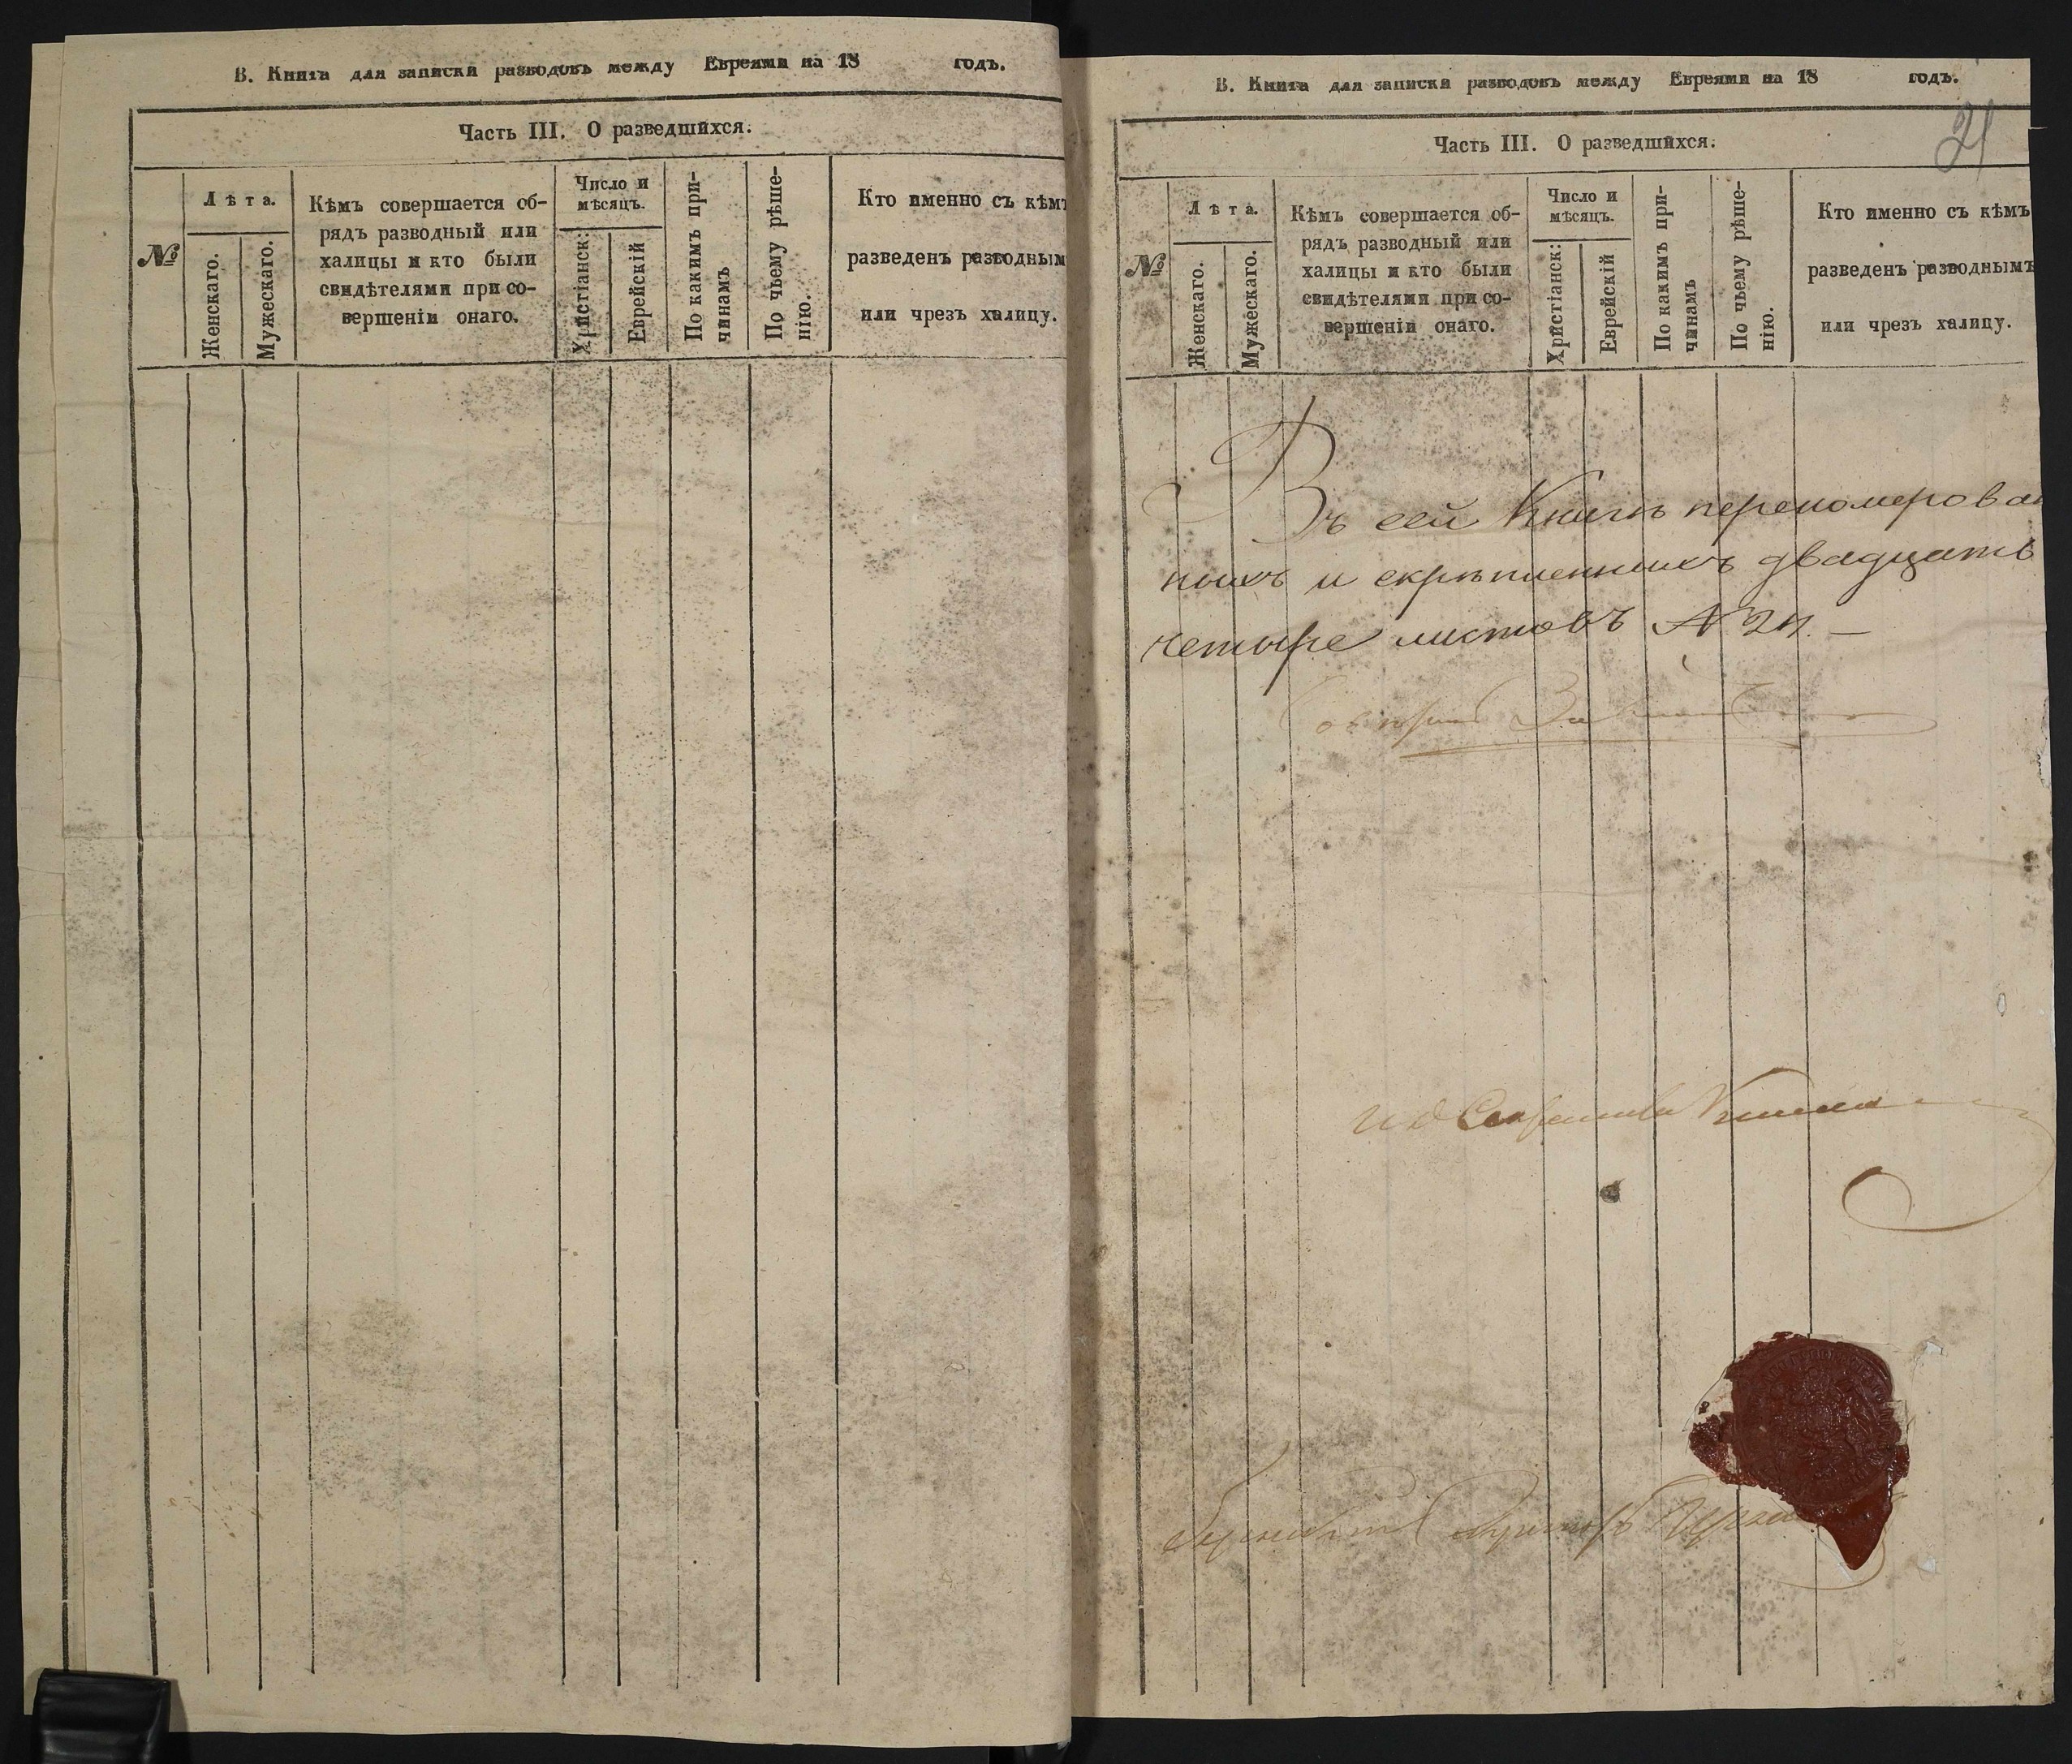 В. Книга для записки разводовъ между Евреями на 18 годъ.
Часть III. О разведшихся.
№
Лѣта.
Женскаго.
Мужескаго.
Кѣмъ совершается об-
рядъ разводный или
халицы и кто были
свидѣтелями при со-
вершеніи онаго.
Число и
мѣсяцъ.
Христіанск:
Еврейскій
По какимъ при-
чинамъ
По чьему рѣше-
нію.
Кто именно съ кѣмъ
разведенъ разводным
или чрезъ халицу.
В. Книга для записки разводовъ между Евреями на 18 годъ.
Часть III. О разведшихся.
№
Лѣта.
Женскаго.
Мужескаго.
Кѣмъ совершается об-
рядъ разводный или
халицы и кто были
свидѣтелями при со-
вершеніи онаго.
Число и
мѣсяцъ.
Христіанск:
Еврейскій
По какимъ при-
чинамъ
По чьему рѣше-
нію.
Кто именно съ кѣмъ
разведенъ разводнымъ
или чрезъ халицу.
Въ сей Книгѣ перепомерован
ныхъ и скрѣпленныхъ двадцать
четыре листовъ № 24. —
И д Секретаря